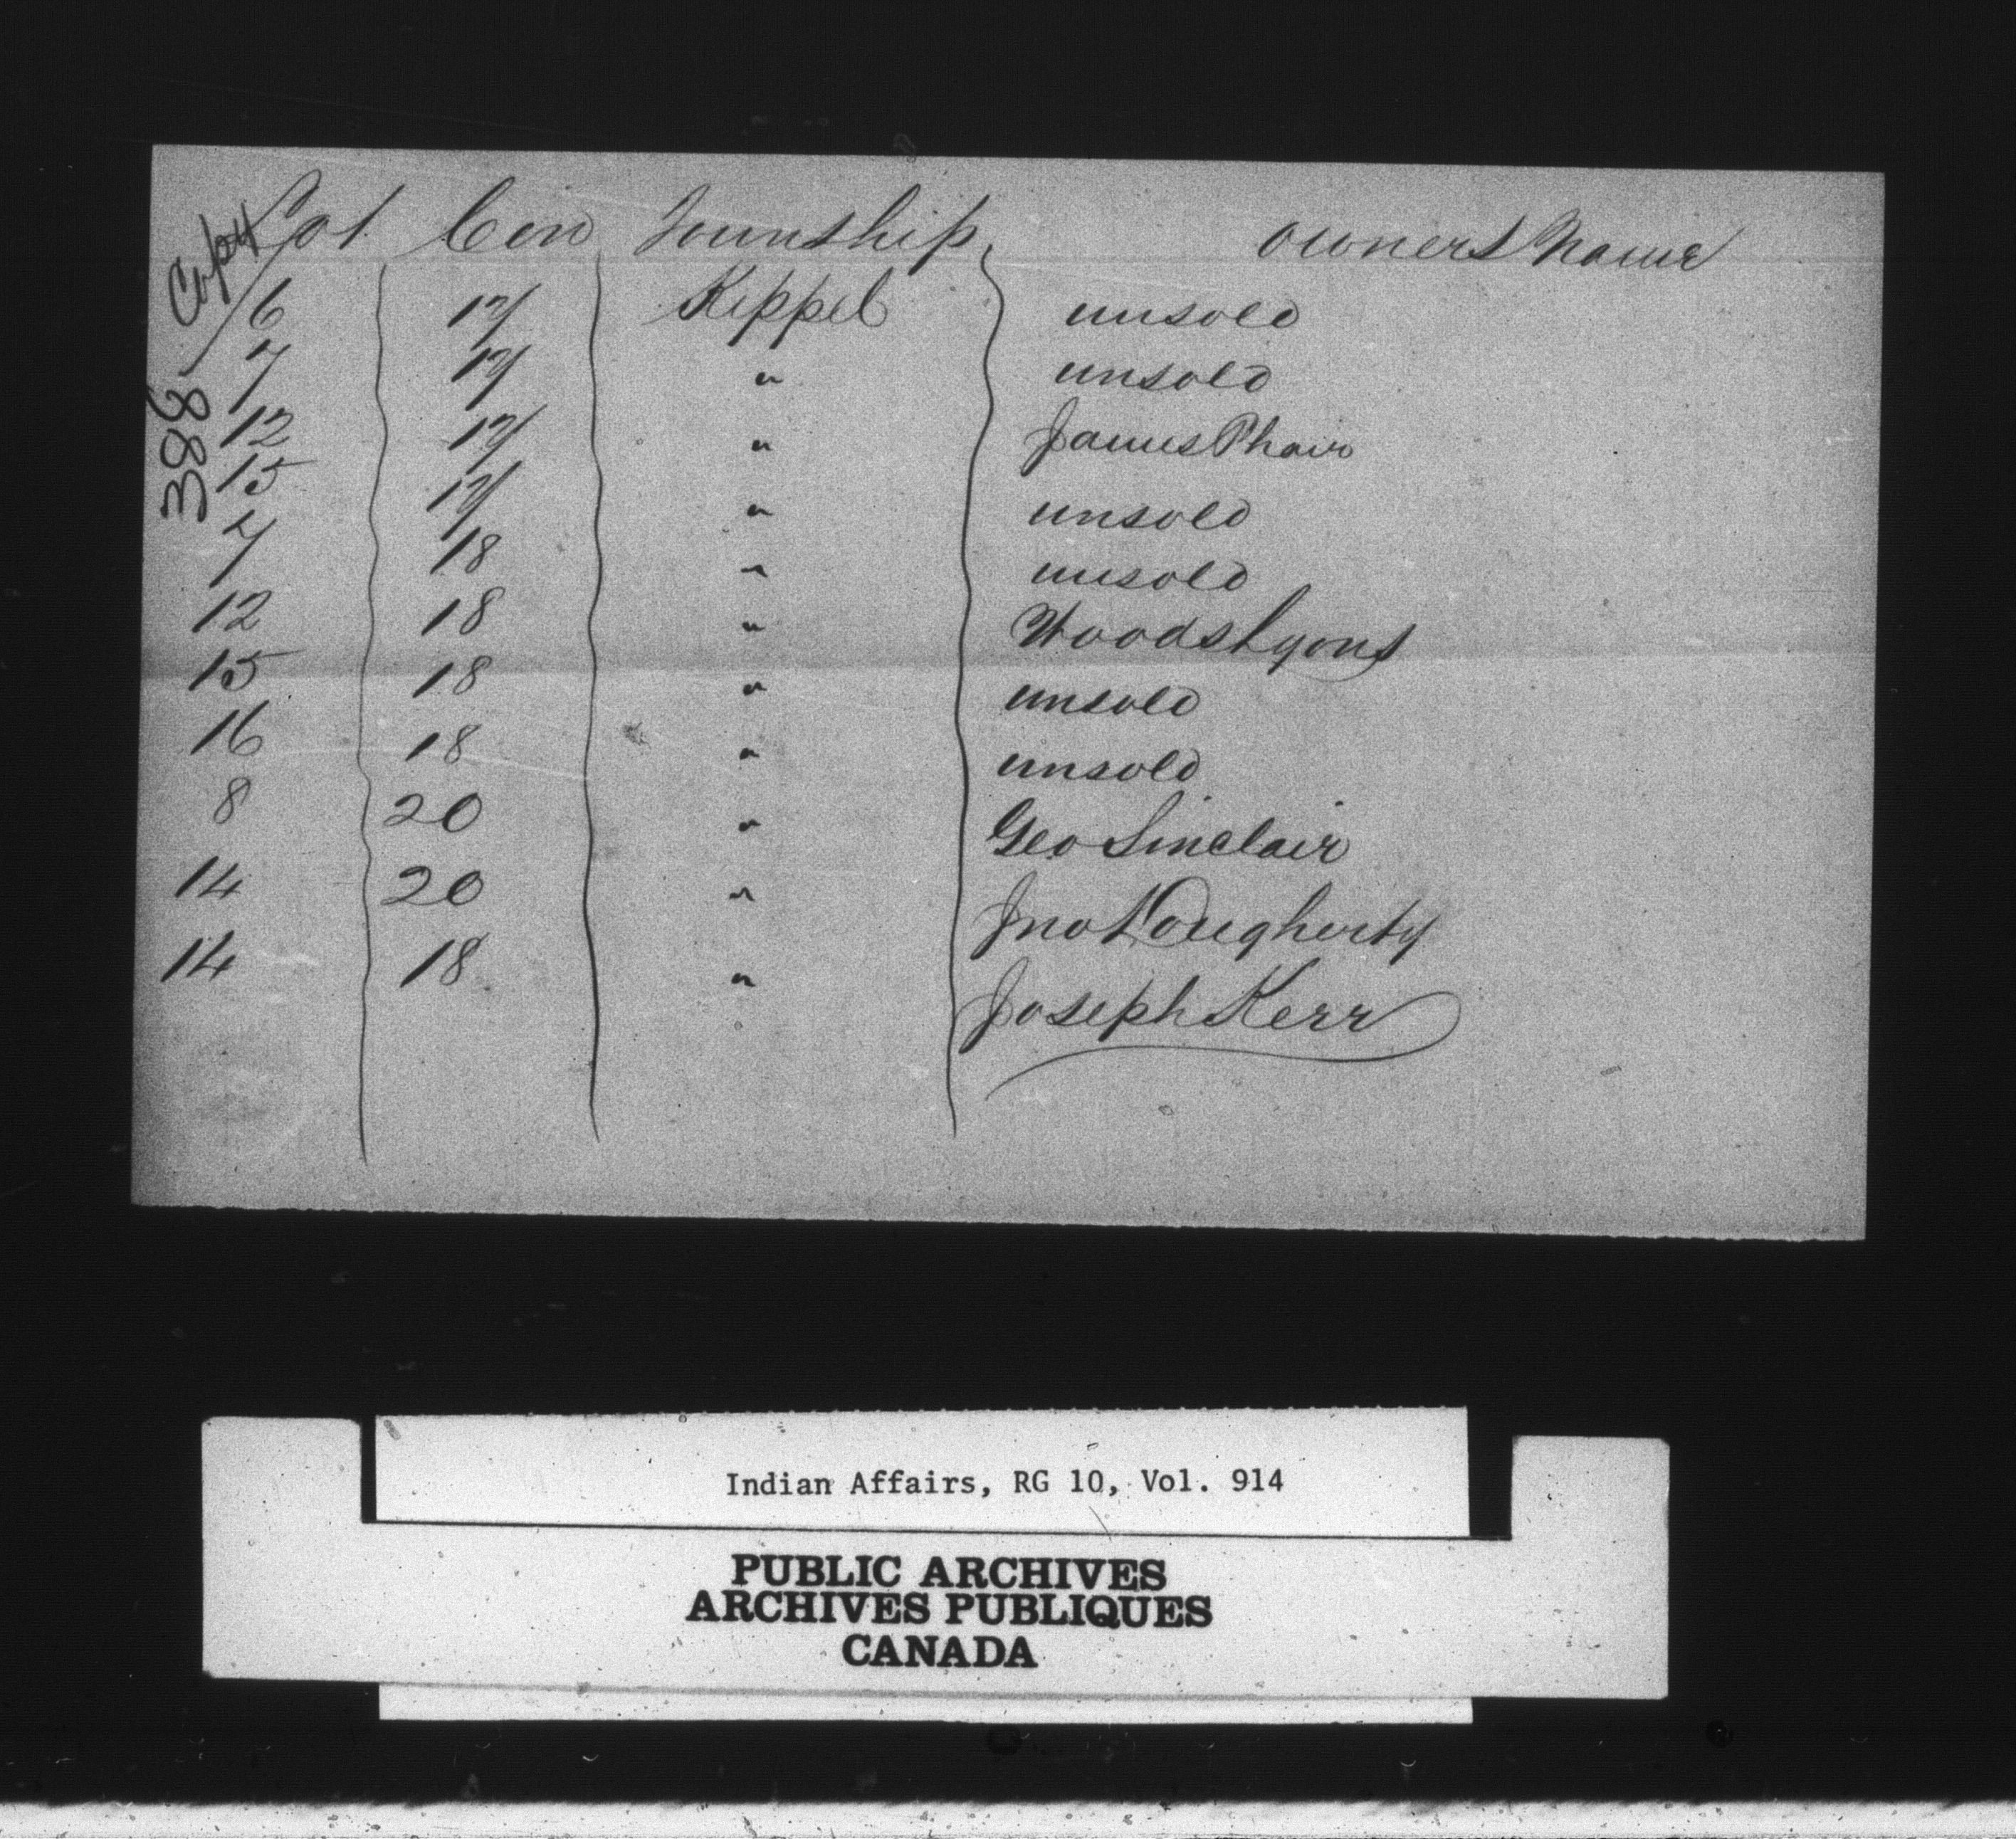 Copy
388
Lot Con Township owners Name
6 17 Keppel unsold
7 17 " unsold
12 17 " James Phair
15 17 " unsold
7 18 " unsold
12 18 " Woods Lyons
15 18 " unsold
16 18 " unsold
8 20 " Geo Sinclair
14 20 " Jno Dougherty
14 18 " Joseph Kerr
Indian Affairs, RG 10, Vol. 914
PUBLIC ARCHIVES
ARCHIVES PUBLIQUES
CANADA